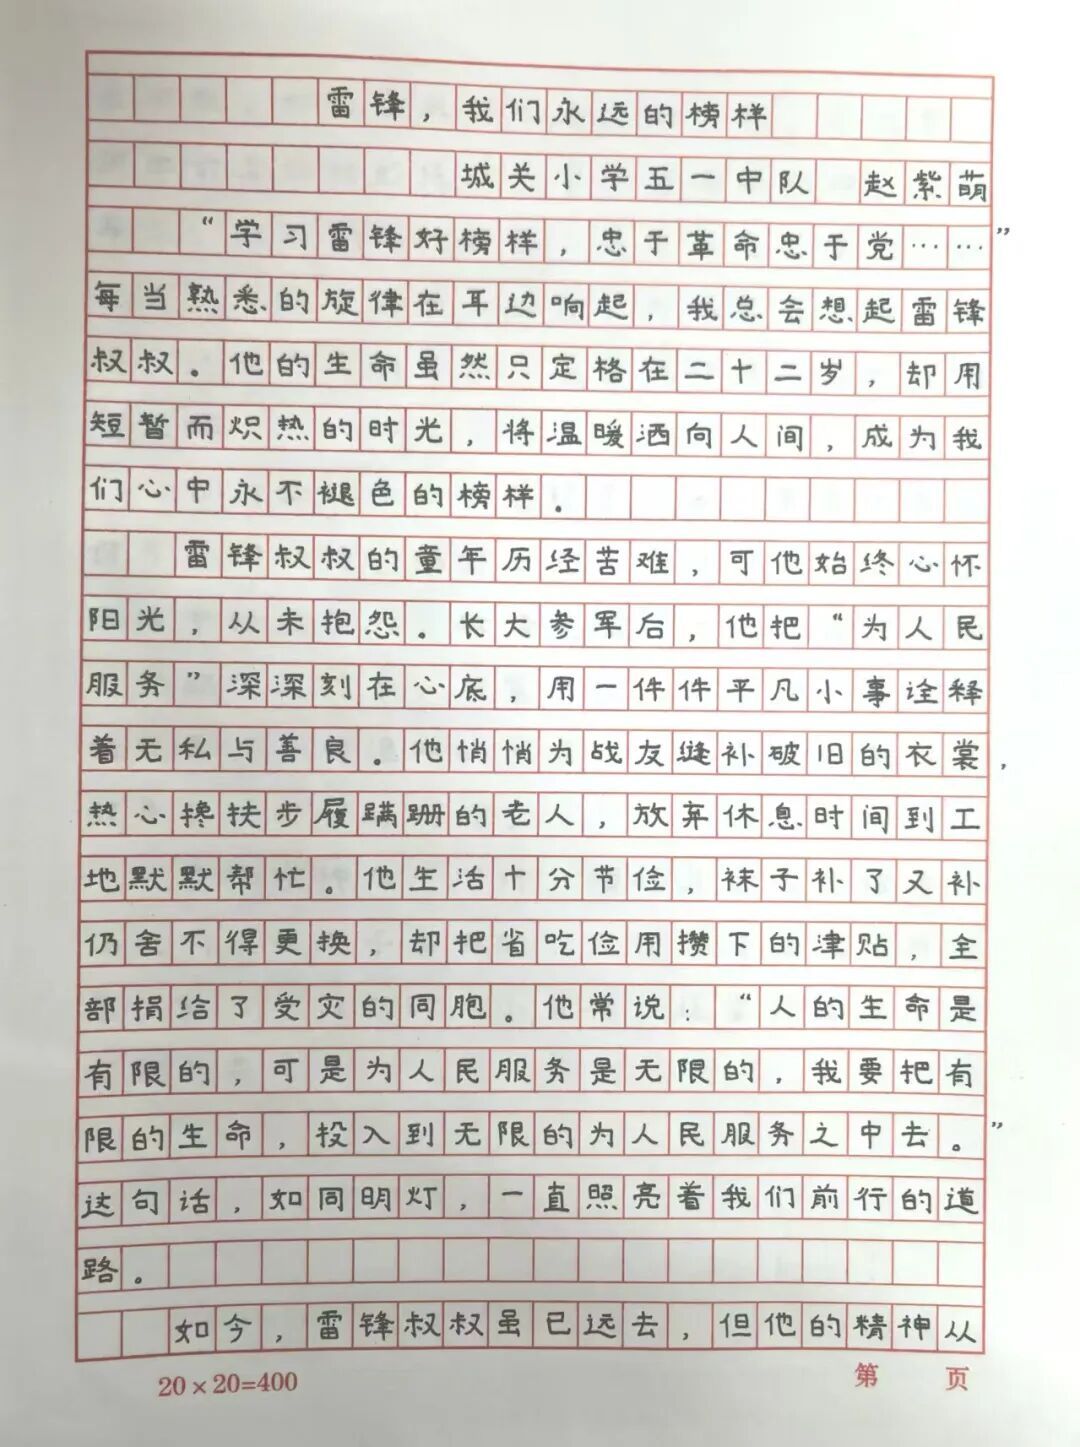 雷锋，我们永远的榜样
城关小学五一中队 赵紫萌
“学习雷锋好榜样，忠于革命忠于党……”
每当熟悉的旋律在耳边响起，我总会想起雷锋
叔叔。他的生命虽然只定格在二十二岁，却用
短暂而炽热的时光，将温暖洒向人间，成为我
们心中永不褪色的榜样。
雷锋叔叔的童年历经苦难，可他始终心怀
阳光，从未抱怨。长大参军后，他把“为人民
服务”深深刻在心底，用一件件平凡小事诠释
着无私与善良。他悄悄为战友缝补破旧的衣裳，
热心搀扶步履蹒跚的老人，放弃休息时间到工
地默默帮忙。他生活十分节俭，袜子补了又补
仍舍不得更换，却把省吃俭用攒下的津贴，全
部捐给了受灾的同胞。他常说：“人的生命是
有限的，可是为人民服务是无限的，我要把有
限的生命，投入到无限的为人民服务之中去。”
这句话，如同明灯，一直照亮着我们前行的道
路。
如今，雷锋叔叔虽已远去，但他的精神从
20×20=400 第 页